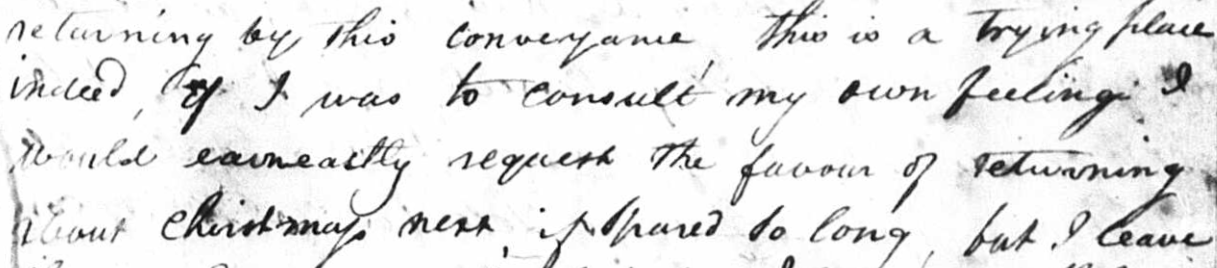 returning by this conveyance, this is a trying place
indeed, if I was to consult my own feelings I
would earneastly request the favour of returning
about Christmas next, if spared so long, but I leave